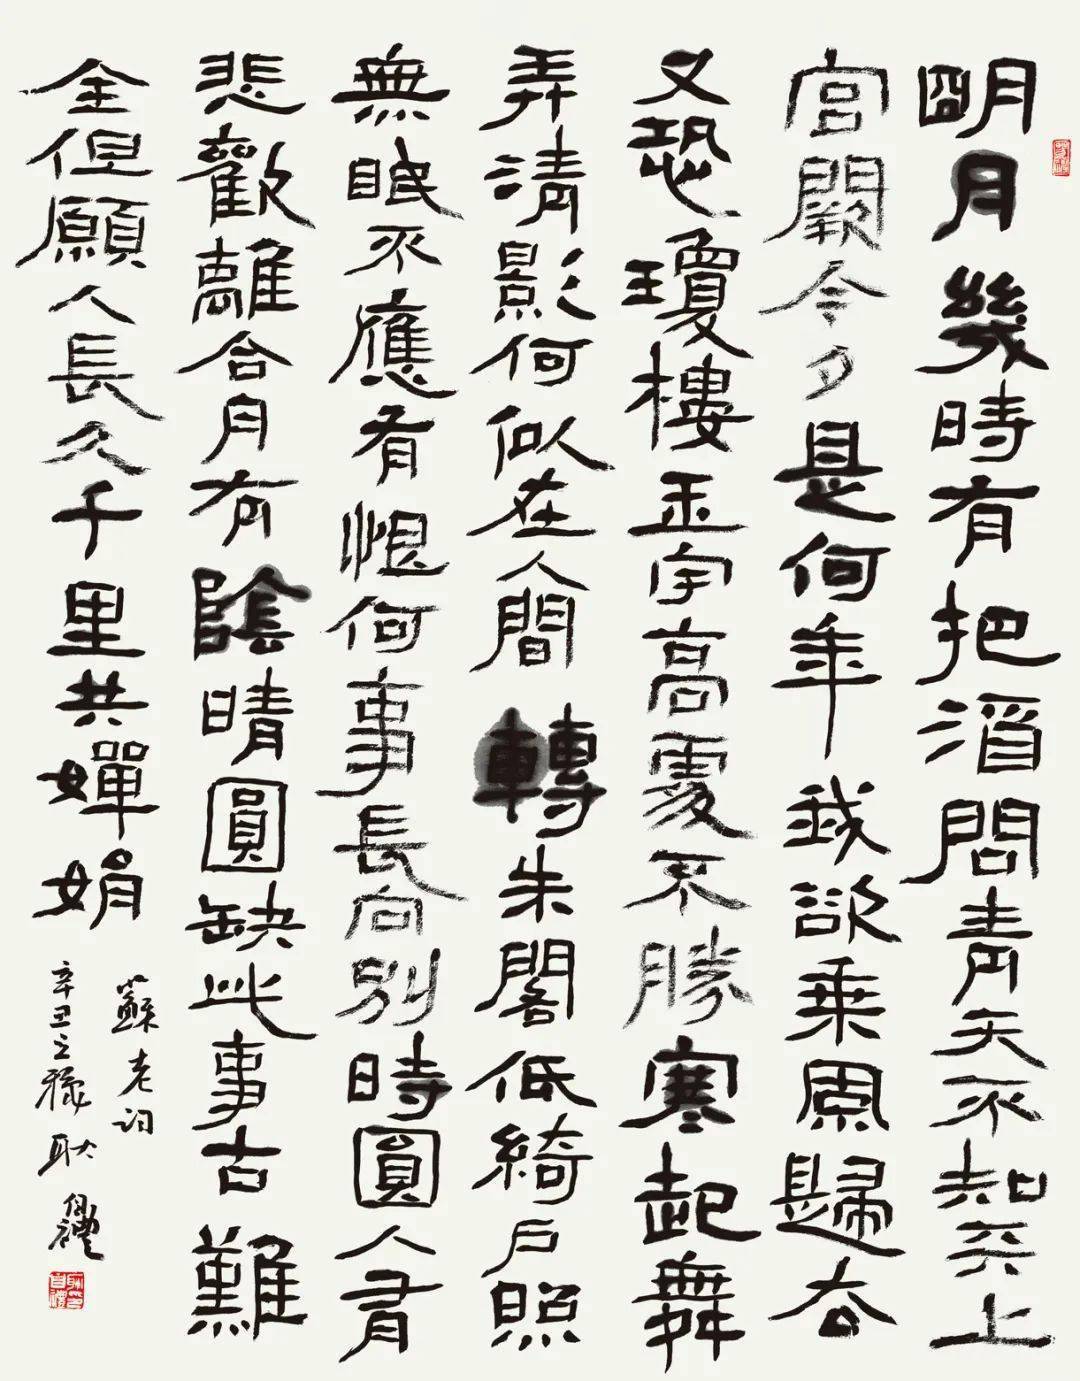 朙月幾時有把酒問青天不知天上
宮闕今夕是何年我欲乘風歸去
又恐瓊樓玉宇高處不勝寒起舞
弄清影何似在人間轉朱閣低綺戶照
無眠不應有恨何事長向別時圓人有
悲歡離合月有陰晴圓缺此事古難
全但願人長久千里共嬋娟
蘇老詞
辛丑之秋耿